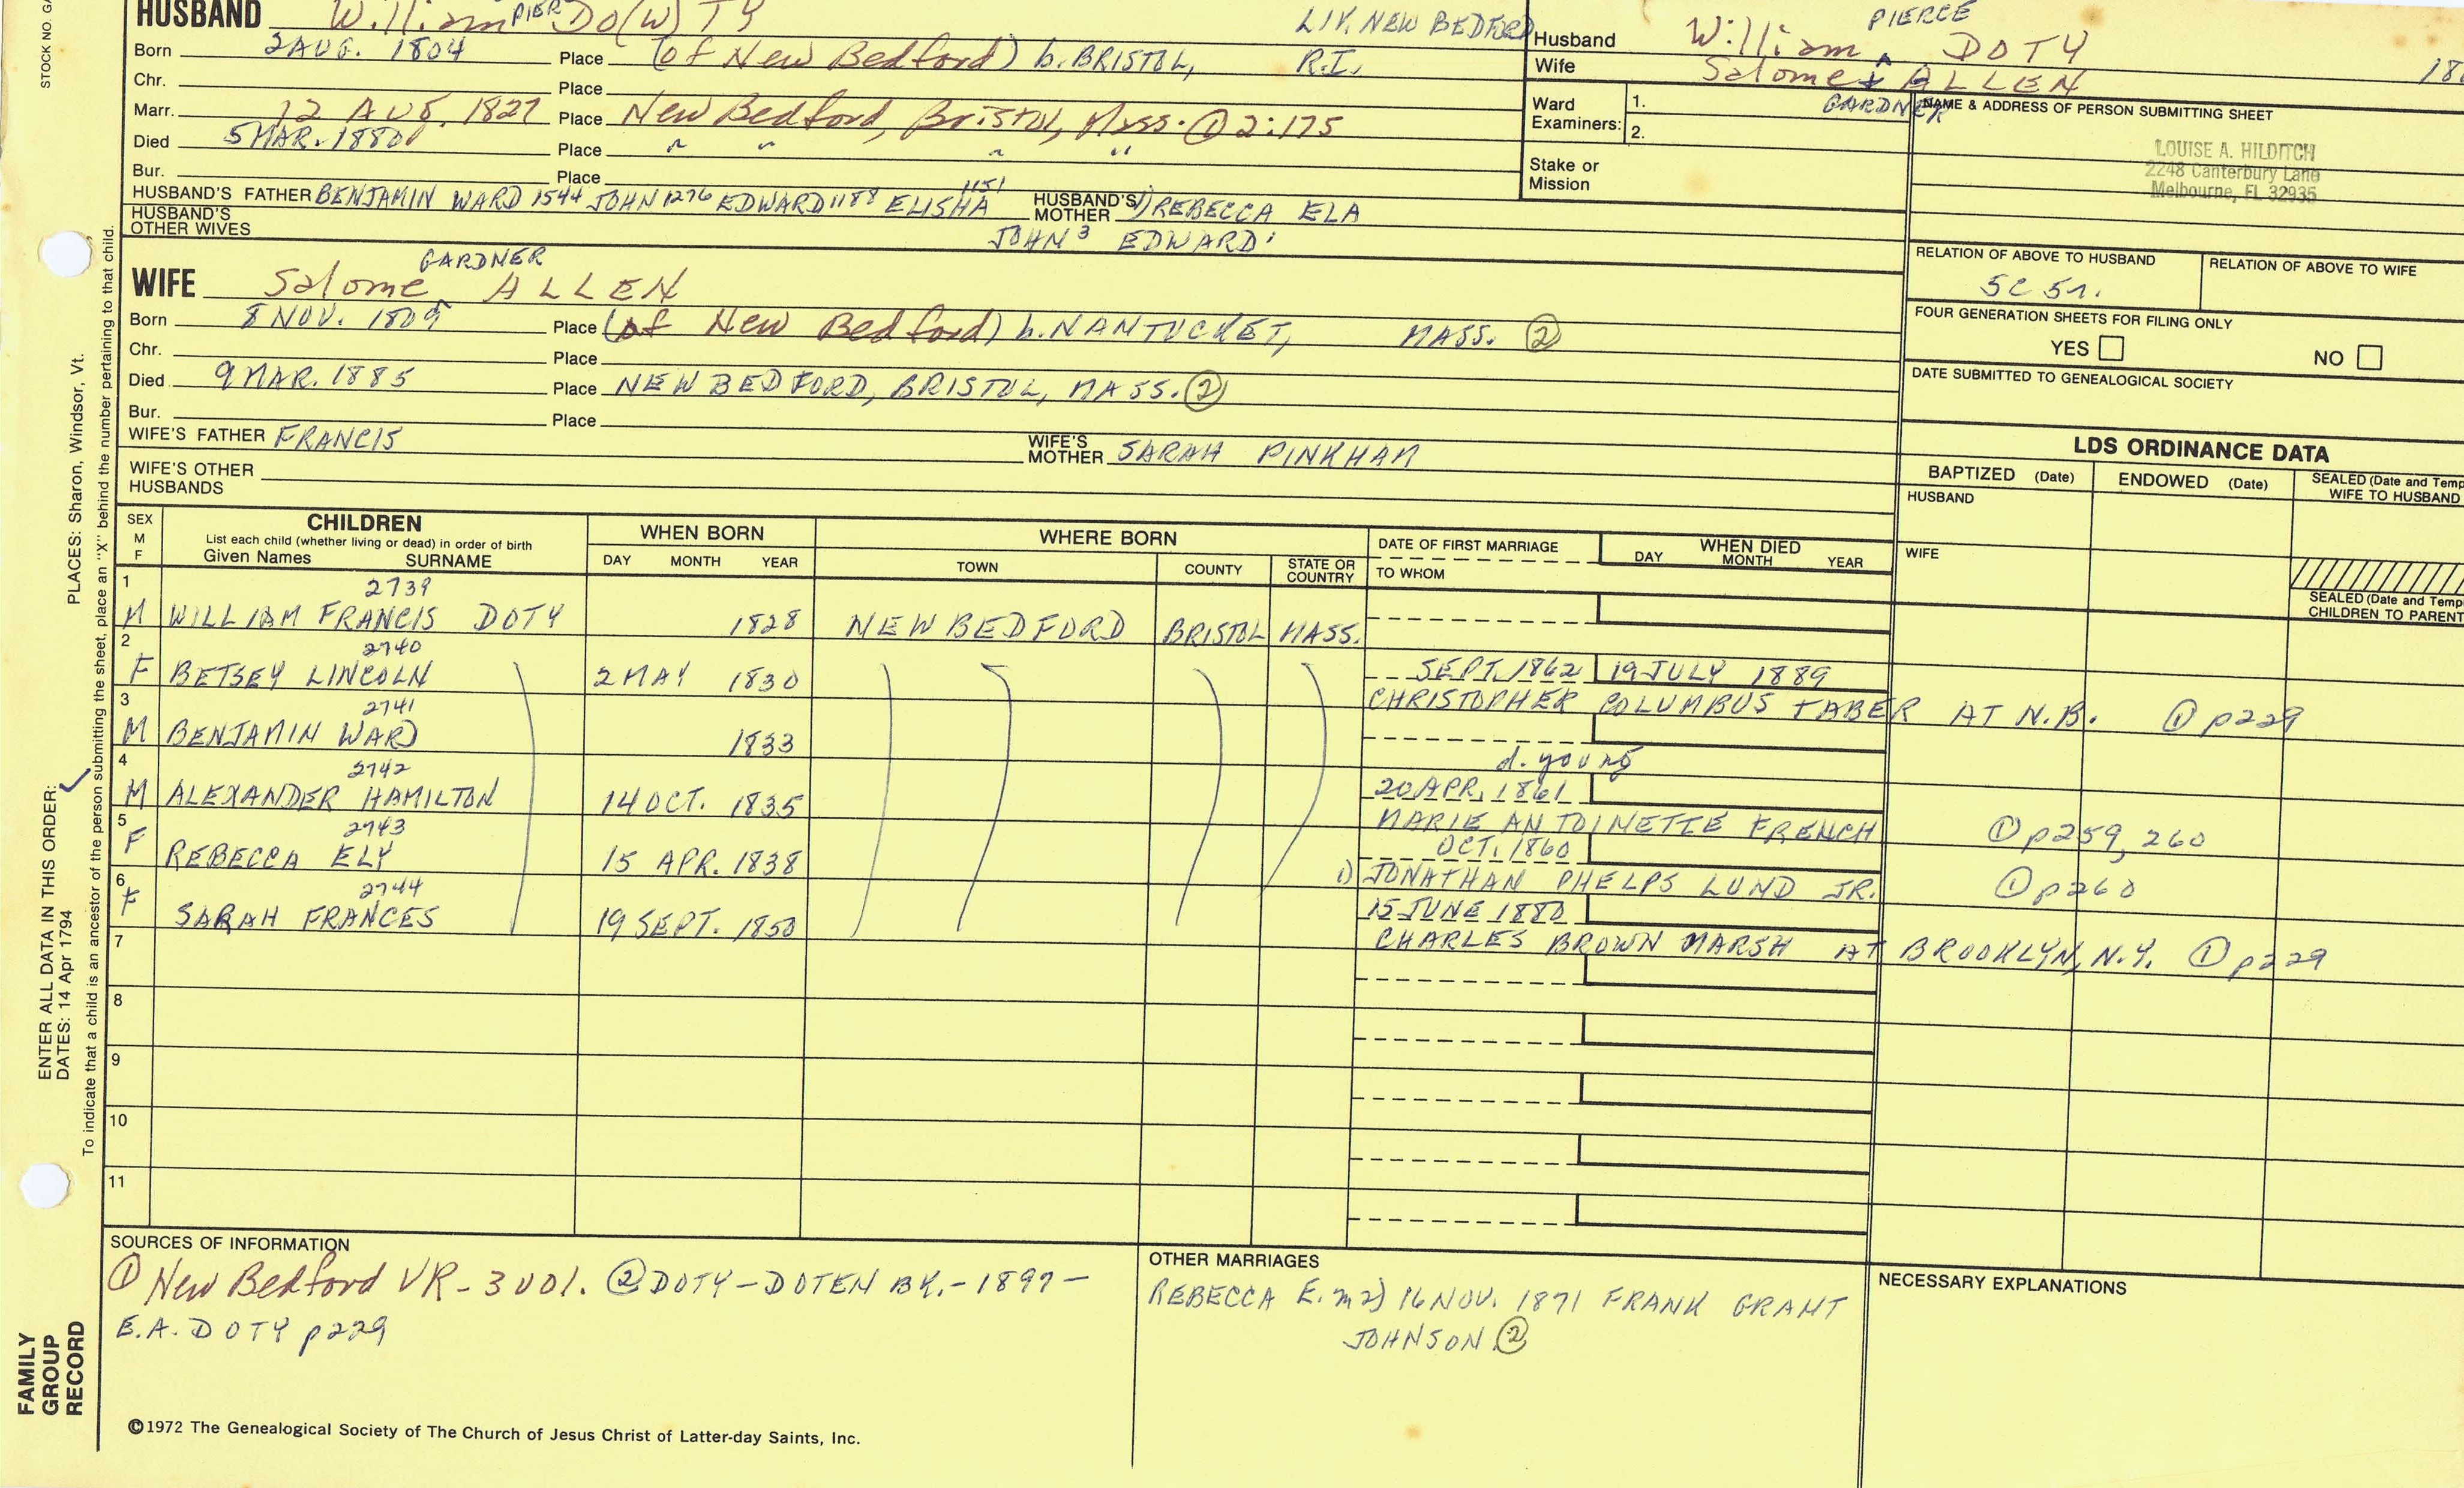 STOCK NO. GA
HUSBAND William PIER DO(W)TY
LIV. NEW BEDFORD
Born 2 AUG. 1804 Place (of New Bedford) b. BRISTOL, R.I.
Chr. Place
Marr. 12 AUG. 1827 Place New Bedford, Bristol, Mass. ① 2:175
Died 5 MAR. 1880 Place " " " "
Bur. Place
HUSBAND'S FATHER BENJAMIN WARD 1544 JOHN 1276 EDWARD 1188 ELISHA 1151 HUSBAND'S MOTHER 1) REBECCA ELA
HUSBAND'S OTHER WIVES JOHN 3 EDWARD 1
WIFE Salome GARDNER ALLEN
Born 8 NOV. 1809 Place (of New Bedford) b. NANTUCKET, MASS. ②
Chr. Place
Died 9 MAR. 1885 Place NEW BEDFORD, BRISTOL, MASS. ②
Bur. Place
WIFE'S FATHER FRANCIS WIFE'S MOTHER SARAH PINKHAM
WIFE'S OTHER HUSBANDS
Husband William PIERCE DOTY
Wife Salome ALLEN 18
GARDNER
Ward Examiners: 1.
2.
Stake or Mission
NAME & ADDRESS OF PERSON SUBMITTING SHEET
LOUISE A. HILDITCH
2248 Canterbury Lane
Melbourne, FL 32935
RELATION OF ABOVE TO HUSBAND RELATION OF ABOVE TO WIFE
5C 5r.
FOUR GENERATION SHEETS FOR FILING ONLY
YES NO
DATE SUBMITTED TO GENEALOGICAL SOCIETY
LDS ORDINANCE DATA
BAPTIZED (Date) ENDOWED (Date) SEALED (Date and Temp
WIFE TO HUSBAND
HUSBAND
WIFE
SEALED (Date and Temp
CHILDREN TO PARENT
SEX M F CHILDREN WHEN BORN WHERE BORN DATE OF FIRST MARRIAGE WHEN DIED
List each child (whether living or dead) in order of birth
Given Names SURNAME DAY MONTH YEAR TOWN COUNTY STATE OR COUNTRY TO WHOM DAY MONTH YEAR
1 2739
M WILLIAM FRANCIS DOTY 1828 NEW BEDFORD BRISTOL MASS.
2 2740
F BETSEY LINCOLN 2 MAY 1830 SEPT. 1862 19 JULY 1889
CHRISTOPHER COLUMBUS TABER AT N.B. ① p229
3 2741
M BENJAMIN WARD 1833
d. young
4 2742
M ALEXANDER HAMILTON 14 OCT. 1835 20 APR. 1861
MARIE ANTOINETTE FRENCH ① p259, 260
5 2743
F REBECCA ELY 15 APR. 1838 OCT. 1860
1) JONATHAN PHELPS LUND JR. ① p260
6 2744
F SARAH FRANCES 19 SEPT. 1850 15 JUNE 1880
CHARLES BROWN MARSH AT BROOKLYN, N.Y. ① p229
7
8
9
10
11
SOURCES OF INFORMATION
① New Bedford VR - 3 vol. ② DOTY-DOTEN BK. - 1897 -
E.A. DOTY p229
OTHER MARRIAGES
REBECCA E. m 2) 16 NOV. 1871 FRANK GRANT
JOHNSON ②
NECESSARY EXPLANATIONS
©1972 The Genealogical Society of The Church of Jesus Christ of Latter-day Saints, Inc.
FAMILY GROUP RECORD
ENTER ALL DATA IN THIS ORDER:
DATES: 14 Apr 1794
PLACES: Sharon, Windsor, Vt.
To indicate that a child is an ancestor of the person submitting the sheet, place an "X" behind the number pertaining to that child.